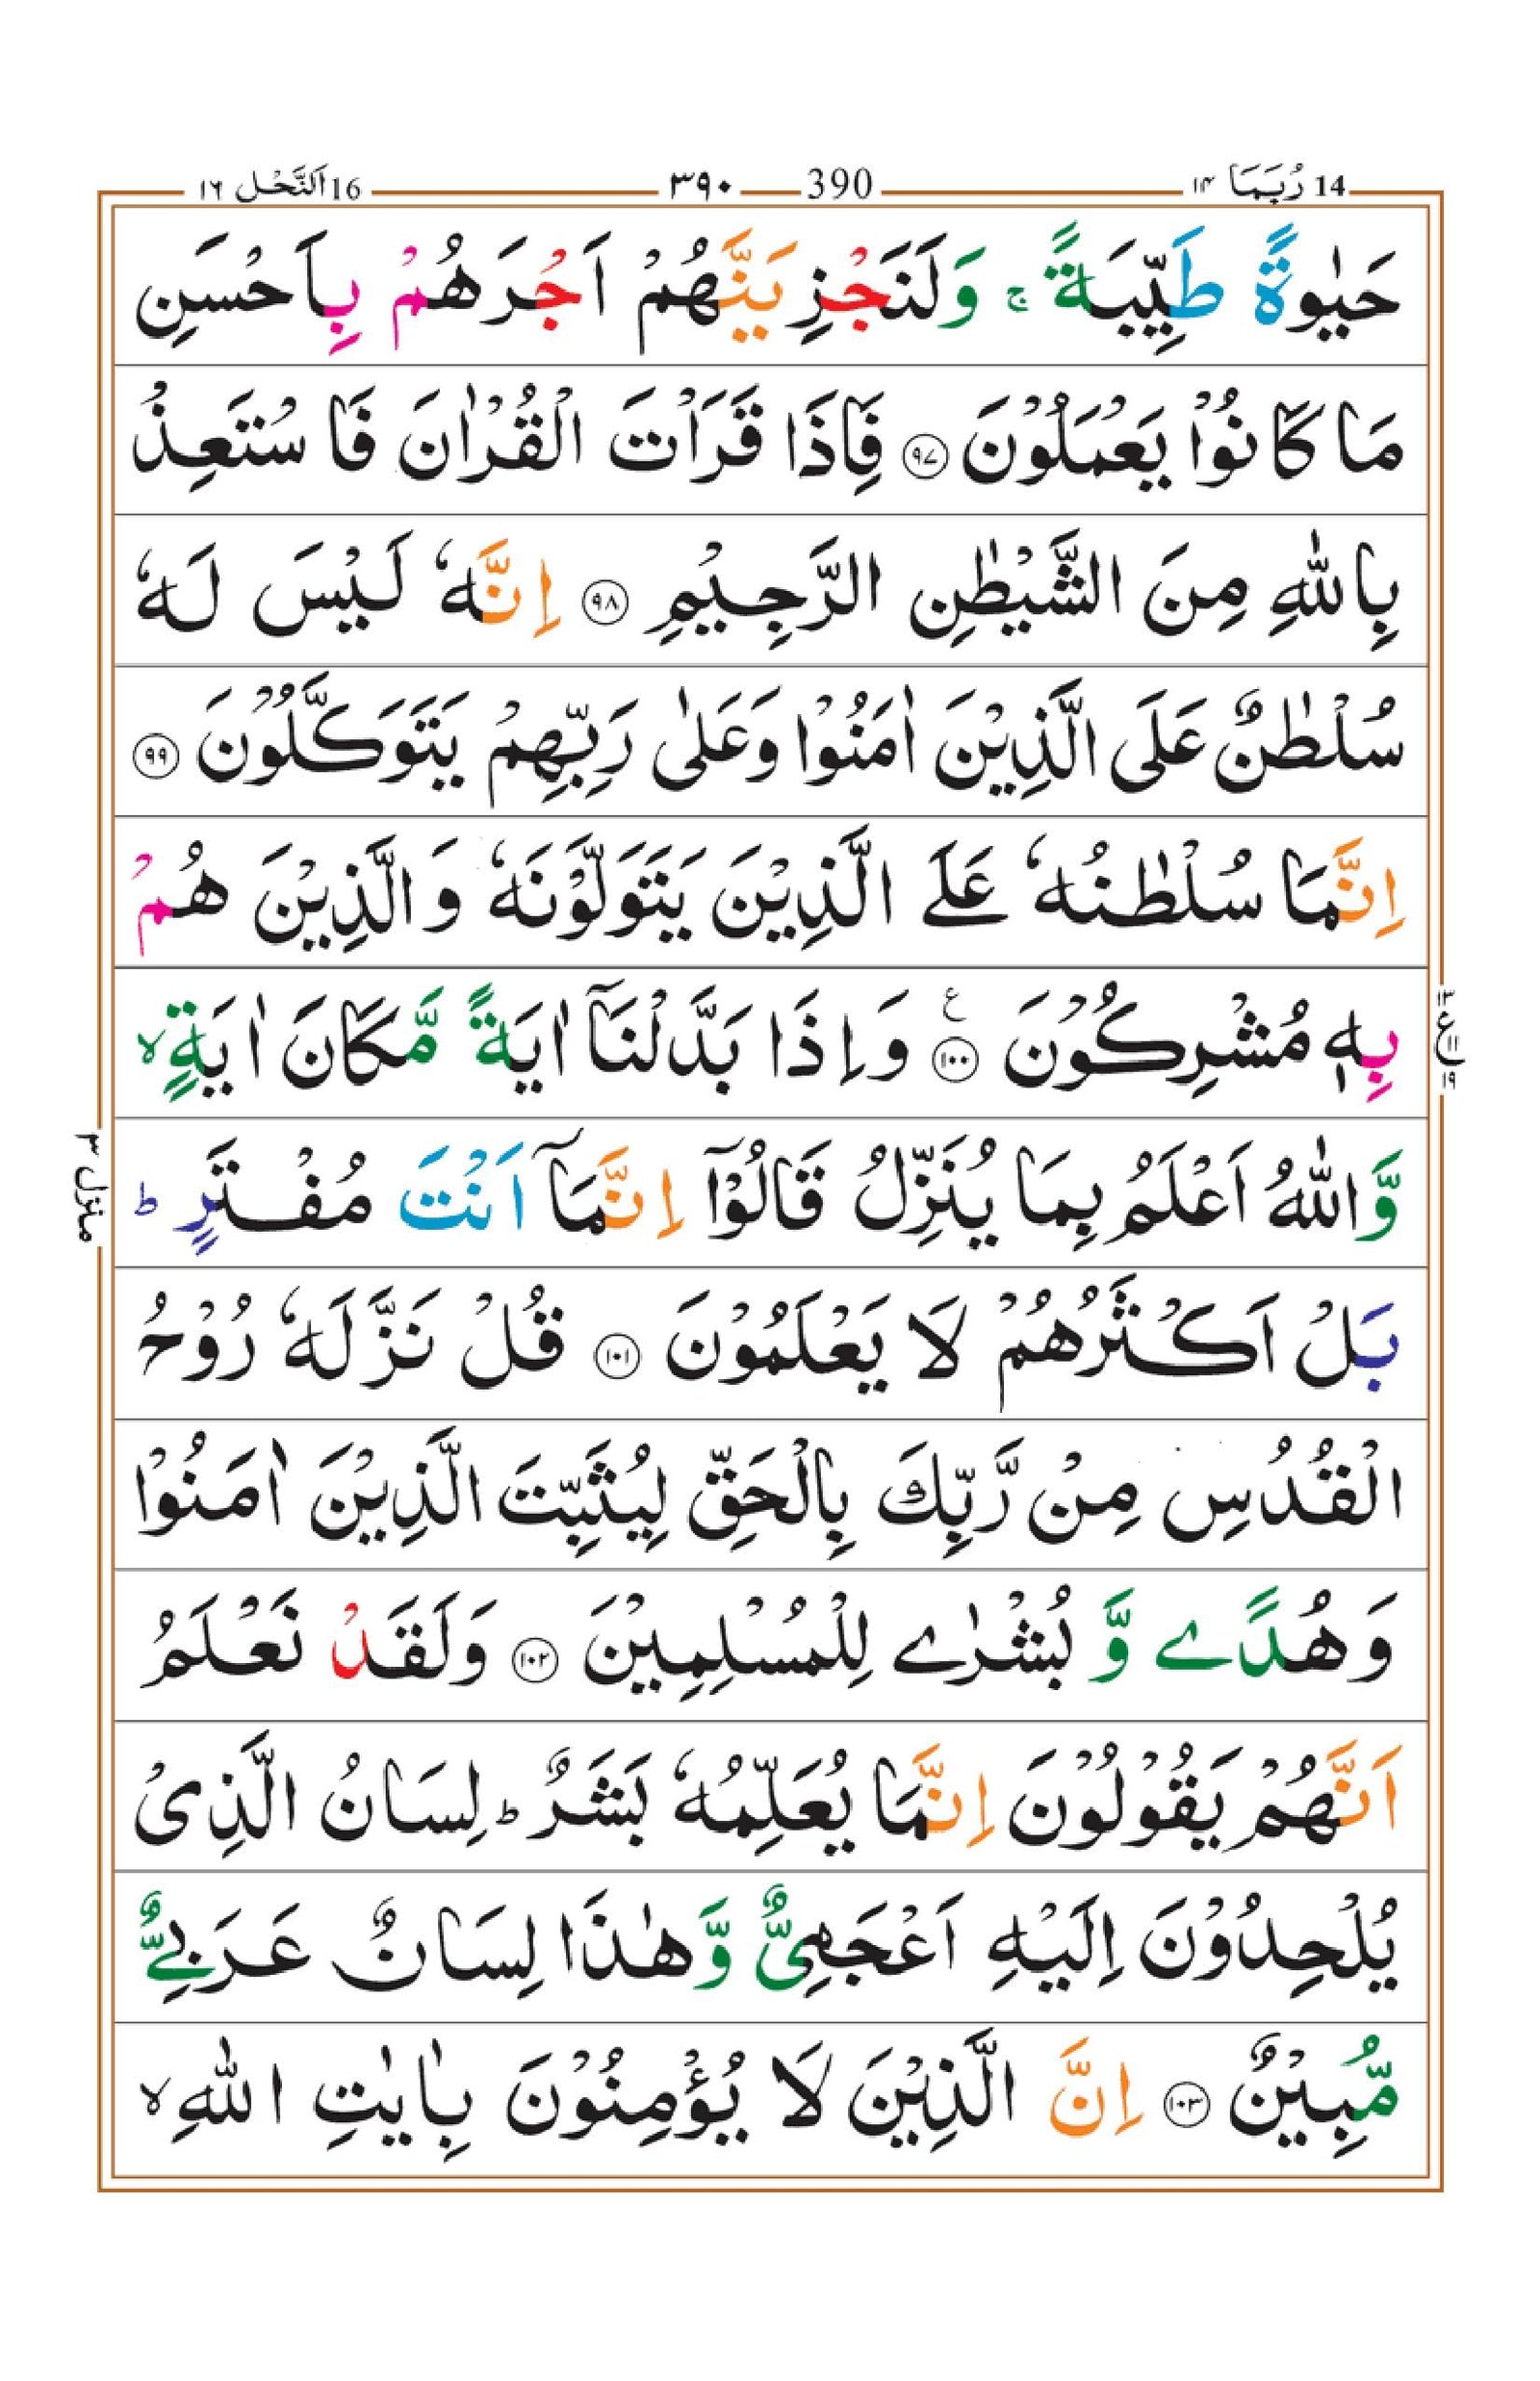 14 رُبَمَا ١٤
390 ٣٩٠
16 اَلنَّحْل ١٦
حَيٰوةً طَيِّبَةً ۚ وَلَنَجْزِيَنَّهُمْ اَجْرَهُمْ بِاَحْسَنِ
مَا كَانُوْا يَعْمَلُوْنَ ﴿٩٧﴾ فَاِذَا قَرَاْتَ الْقُرْاٰنَ فَاسْتَعِذْ
بِاللّٰهِ مِنَ الشَّيْطٰنِ الرَّجِيْمِ ﴿٩٨﴾ اِنَّهٗ لَيْسَ لَهٗ
سُلْطٰنٌ عَلَى الَّذِيْنَ اٰمَنُوْا وَعَلٰى رَبِّهِمْ يَتَوَكَّلُوْنَ ﴿٩٩﴾
اِنَّمَا سُلْطٰنُهٗ عَلَے الَّذِيْنَ يَتَوَلَّوْنَهٗ وَالَّذِيْنَ هُمْ
بِهٖ مُشْرِكُوْنَ ﴿١٠٠﴾ ع وَاِذَا بَدَّلْنَآ اٰيَةً مَّكَانَ اٰيَةٍ ۙ
وَّاللّٰهُ اَعْلَمُ بِمَا يُنَزِّلُ قَالُوْٓا اِنَّمَآ اَنْتَ مُفْتَرٍ ؕ
بَلْ اَكْثَرُهُمْ لَا يَعْلَمُوْنَ ﴿١٠١﴾ قُلْ نَزَّلَهٗ رُوْحُ
الْقُدُسِ مِنْ رَّبِّكَ بِالْحَقِّ لِيُثَبِّتَ الَّذِيْنَ اٰمَنُوْا
وَهُدًے وَّ بُشْرٰے لِلْمُسْلِمِيْنَ ﴿١٠٢﴾ وَلَقَدْ نَعْلَمُ
اَنَّهُمْ يَقُوْلُوْنَ اِنَّمَا يُعَلِّمُهٗ بَشَرٌ ؕ لِسَانُ الَّذِىْ
يُلْحِدُوْنَ اِلَيْهِ اَعْجَمِىٌّ وَّهٰذَا لِسَانٌ عَرَبِىٌّ
مُّبِيْنٌ ﴿١٠٣﴾ اِنَّ الَّذِيْنَ لَا يُؤْمِنُوْنَ بِاٰيٰتِ اللّٰهِ ۙ
ع ١٩
منزل ٣